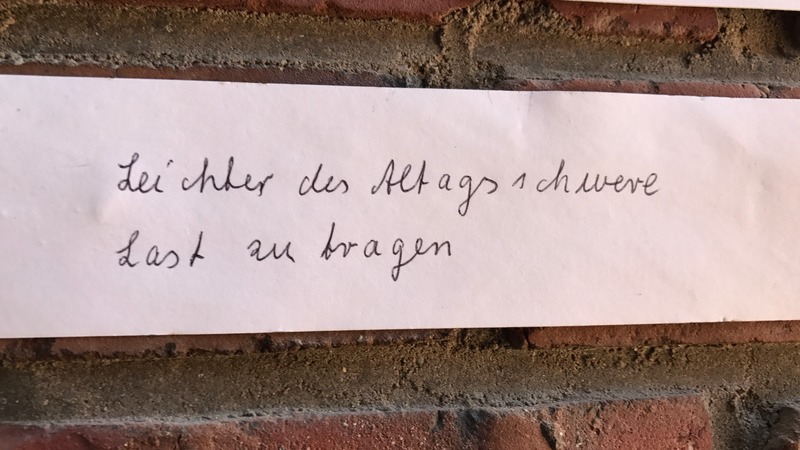 Leichter des Altags schwere
Last zu tragen